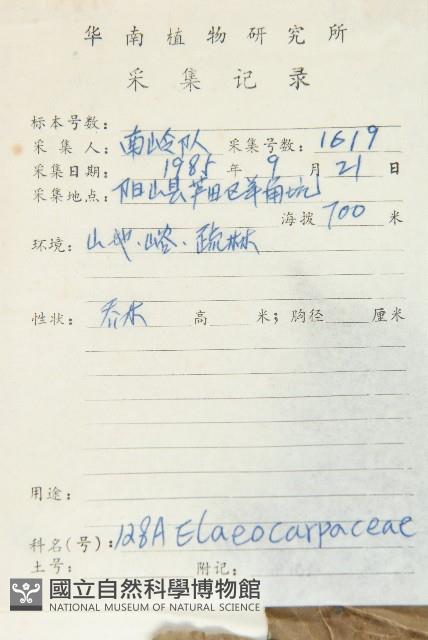 华南植物研究所
采集记录
标本号数:
采集人: 南岭队 采集号数: 1619
采集日期: 1985 年 9 月 21 日
采集地点: 阳山县 羊角坑
海拨 700 米
环境: 山地·峪·疏林
性状: 乔木 高 米; 胸径 厘米
用途:
科名(号): 128A Elaeocarpaceae
土号: 附记:
國立自然科學博物館
NATIONAL MUSEUM OF NATURAL SCIENCE